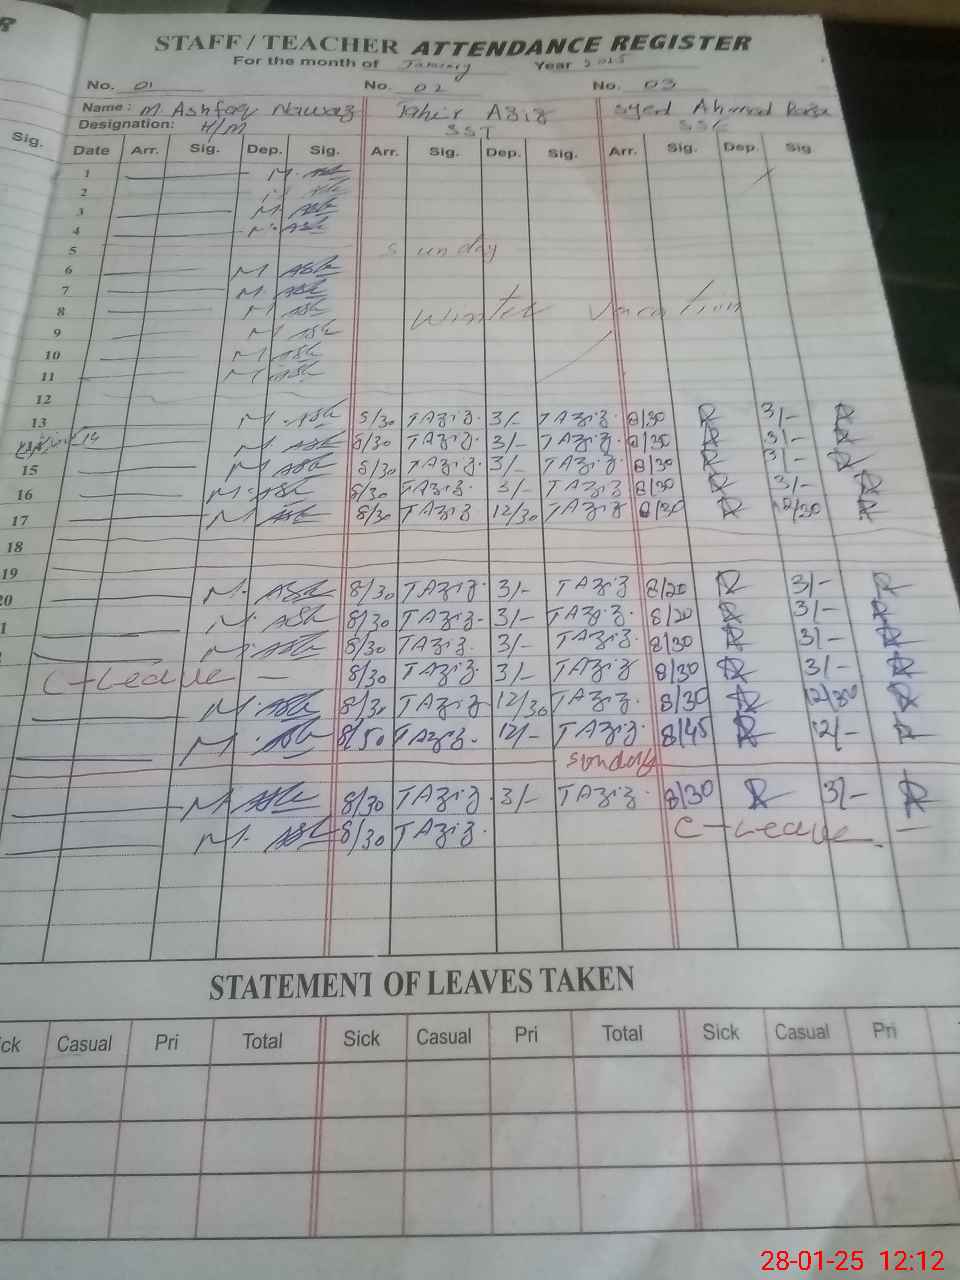 STAFF / TEACHER ATTENDANCE REGISTER
For the month of Year 2025
No. 01 No. 02 No. 03
Name: M. Ashfaq Nawaz Tahir Aziz Syed Ahmad Raza
Designation: H/M SST
Sig. Date Arr. Sig. Dep. Sig. Arr. Sig. Dep. Sig. Arr. Sig. Dep. Sig.
1 M. Ash
2
3 M. Ash
4 M. Ash
5 Sunday
6 M. Ash
7 M. Ash
8 M. Ash Winter Vacation
9 M Ash
10 M Ash
11 M Ash
12
13 M. Ash 8/30 TAziz. 3/- TAziz. 8/30 3/-
14 M Ash 8/30 TAziz. 3/- TAziz. 8/30 3/-
15 M Ash 8/30 TAziz. 3/- TAziz. 8/30 3/-
16 M. Ash 8/30 TAziz. 3/- TAziz 8/30 3/-
17 M. Ash 8/30 TAziz 12/30 TAziz 8/30 12/30
18
19
20 M. Ash 8/30 TAziz. 3/- TAziz 8/20 3/-
1 M. Ash 8/30 TAziz. 3/- TAziz. 8/20 3/-
M. Ash 8/30 TAziz. 3/- TAziz. 8/30 3/-
C-Leave - 8/30 TAziz. 3/- TAziz 8/30 3/-
M. Ash 8/30 TAziz 12/30 TAziz. 8/30 12/30
M. Ash 8/50 TAziz. 12/- TAziz. 8/45 12/-
Sunday
M Ash 8/30 TAziz. 3/- TAziz. 8/30 3/-
M. Ash 8/30 TAziz. C-Leave. -
STATEMENT OF LEAVES TAKEN
ck Casual Pri Total Sick Casual Pri Total Sick Casual Pri
28-01-25 12:12